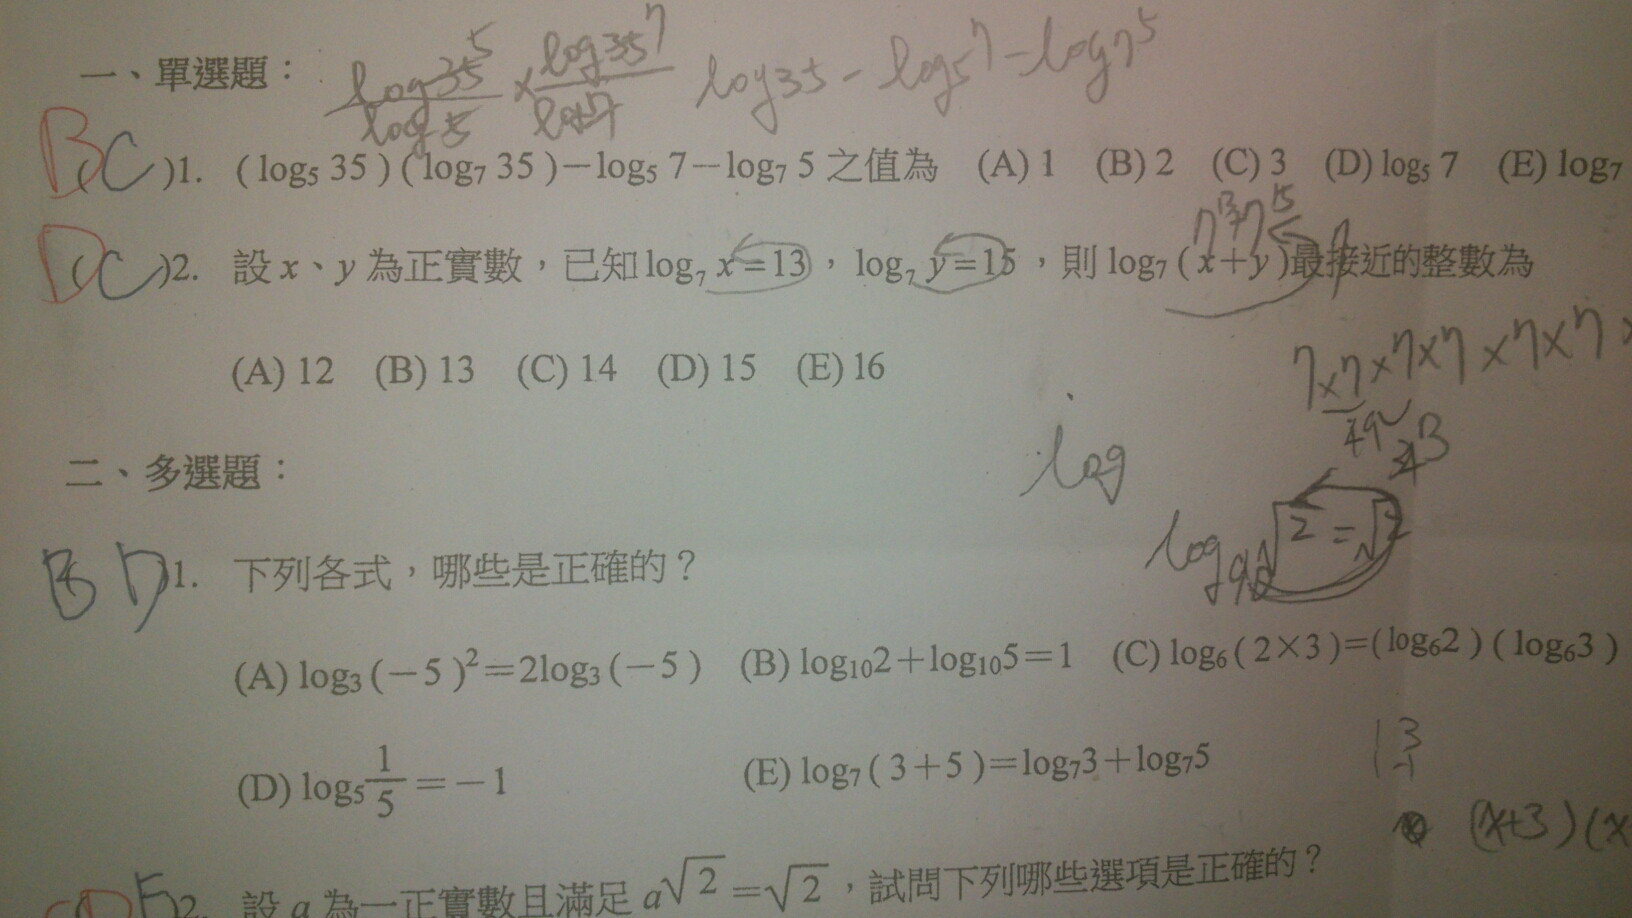 一、單選題：
log35 5 × log35 7 log35 - log5 7 - log7 5
log 5
BC)1. (log₅ 35)(log₇ 35)−log₅ 7−log₇ 5 之值為 (A) 1 (B) 2 (C) 3 (D) log₅ 7 (E) log₇
7¹³+7¹⁵
D(C)2. 設 x、y 為正實數，已知 log₇ x=13，log₇ y=15，則 log₇ (x+y)最接近的整數為
7×7×7×7×7×7×
(A) 12 (B) 13 (C) 14 (D) 15 (E) 16
49
log
二、多選題：
log a √2 = √2
B D)1. 下列各式，哪些是正確的？
(A) log₃(−5)²=2log₃(−5) (B) log₁₀2+log₁₀5=1 (C) log₆(2×3)=(log₆2)(log₆3)
1 3
(D) log₅ 1/5 =−1 (E) log₇(3+5)=log₇3+log₇5
(x+3)(x
2. 設 a 為一正實數且滿足 a^√2=√2，試問下列哪些選項是正確的？